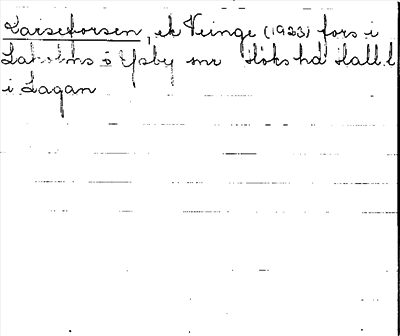 Karseforsen, ek Veinge (1923) fors i
Laholms o Ysby snr Höks hd Hall.l
i Lagan